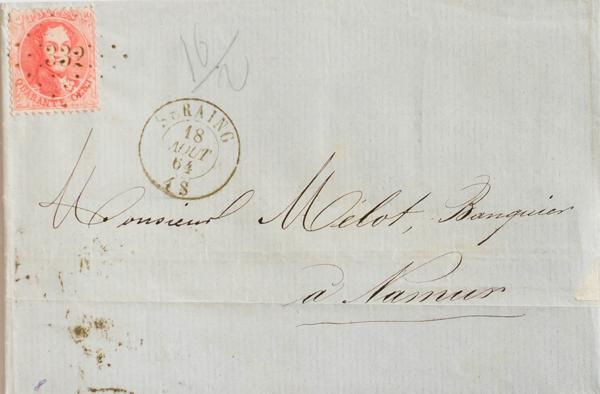 POSTES
332
QUARANTE CENT
16/2
SERAING
18
AOUT
64
4 S
Monsieur Mélot, Banquier
à Namur
8